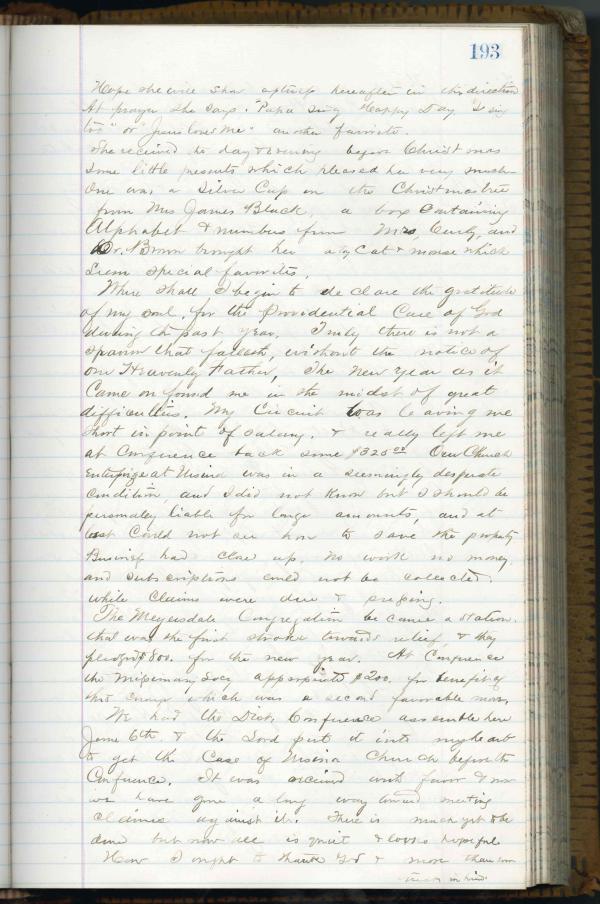 193
Hope she will show aptness hereafter in this direction
At prayer she says. "Papa sing Happy Day I sing
too" or "Jesus loves Me" another favorite.
She received to day & evening before Christmas
some little presents which pleased her very much
One was a Silver Cup on the Christmas tree
from Mrs James Black, a box Containing
Alphabet & numbers from Mrs, Curly, and
Dr. Brown brought her a toy Cat & mouse which
seem special favorites.
Where shall I begin to declare the gratitude
of my soul, for the Providential Care of God
during the past year, Truly there is not a
sparow that falleth, without the notice of
our Heavenly Father, The New Year as it
Came on found me in the midst of great
difficulties. My Circuit was leaving me
short in point of salary. & really left me
at Conference back some $325 00 Our Church
Enterprize at was in a seemingly desperate
condition, and I did not know but I should be
personally liable for large amounts, and at
least could not see how to save the property
Business had close up. no work no money.
and subscriptions could not be collected.
while Claims were due & pressing.
The Meyersdale Congregation became a station.
that was the first stroke towards relief & they
pledged $800. for the new year. At Conference
the Missionary Socy appropriated $200. for benefit of
this charge which was a second favorable move,
We had the Dist. Conference assemble here
June 6th & the Lord put it into my heart
to get the Case of Church before the
Conference. It was received with favor & now
we have gone a long way toward meeting
claims against it. There is much yet to be
done but now all is quiet & looks hopeful
How I ought to thank God & more than